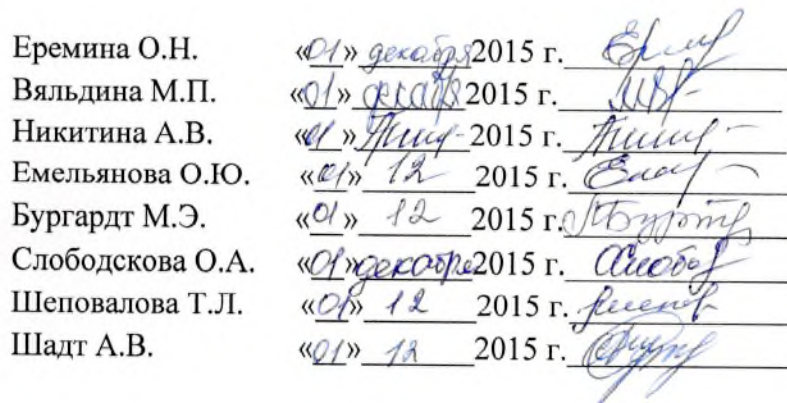 Еремина О.Н. «01» декабря 2015 г.
Вяльдина М.П. «01» декабря 2015 г.
Никитина А.В. «01» 2015 г.
Емельянова О.Ю. «01» 12 2015 г.
Бургардт М.Э. «01» 12 2015 г.
Слободскова О.А. «01» декабря 2015 г.
Шеповалова Т.Л. «01» 12 2015 г.
Шадт А.В. «01» 12 2015 г.